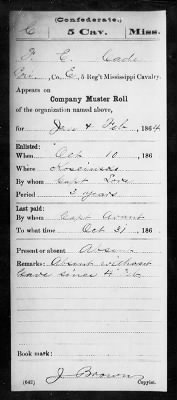 (Confederate.)
C 5 Cav. Miss.
C. Cade
Pri, Co. E, 5 Reg't Mississippi Cavalry.
Appears on
Company Muster Roll
of the organization named above,
for Jan & Feb, 1864
Enlisted:
When Oct 10, 186
Where Kosciusko
By whom Capt Love
Period 3 years
Last paid:
By whom Capt Avant
To what time Oct 31, 186
Present or absent Absent
Remarks: Absent without
leave since
Book mark:
J. Brown
(642) Copyist.